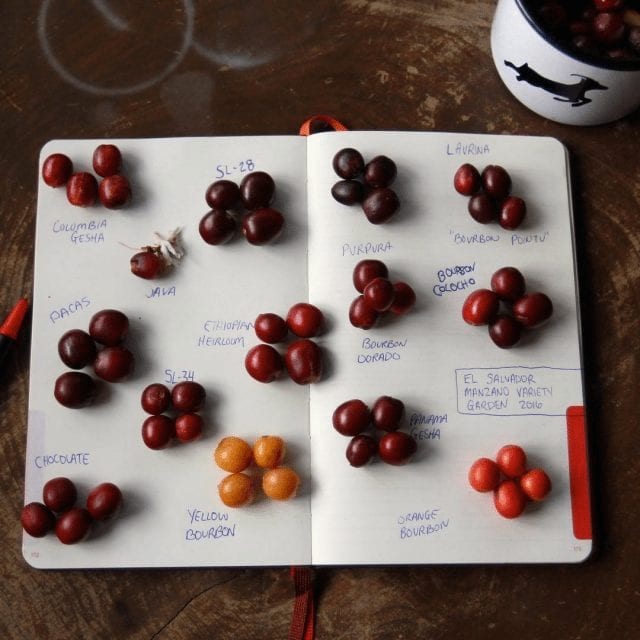 SL-28
COLOMBIA
GESHA
JAVA
PACAS
ETHIOPIAN
HEIRLOOM
SL-34
CHOCOLATE
YELLOW
BOURBON
LAURINA
"BOURBON POINTU"
PURPURA
BOURBON
COLOCHO
BOURBON
DORADO
EL SALVADOR
MANZANO VARIETY
GARDEN 2016
PANAMA
GESHA
ORANGE
BOURBON